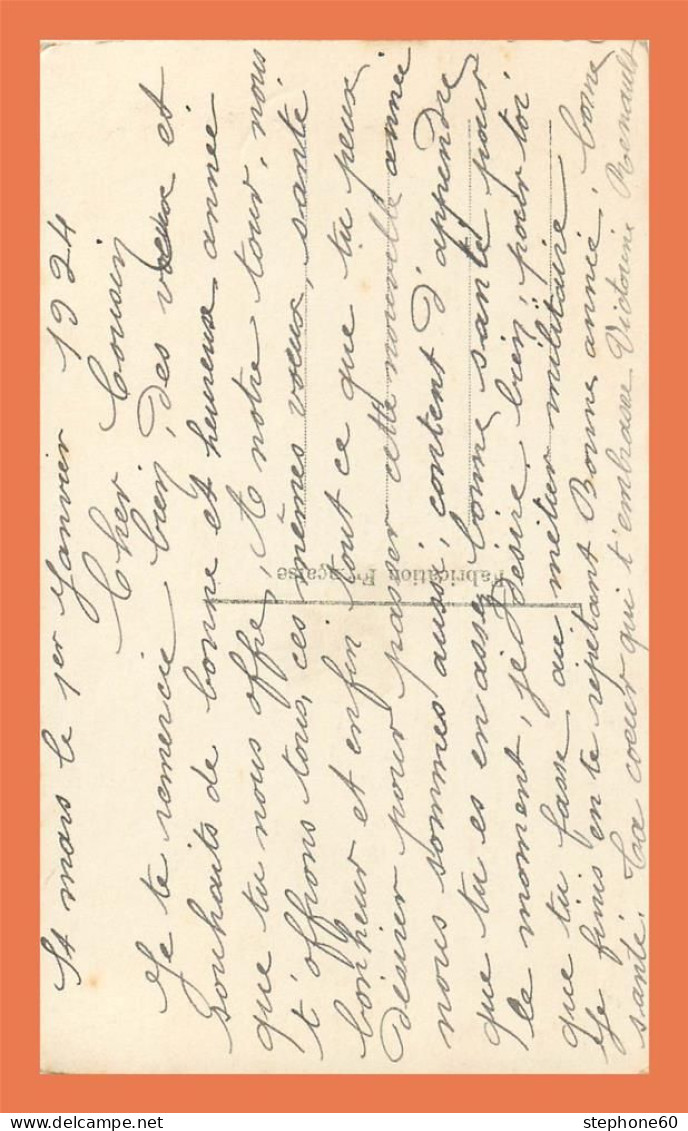 St mars le 1er Janvier 1924
Cher Cousin
Je te remercie bien, des vœux et
souhaits de bonne et heureuse année
que tu nous offre, A notre tour, nous
t'offrons tous, ces mêmes vœux, santé
bonheur et enfin tout ce que tu peux
désirer pour passer cette nouvelle année
nous sommes aussi, content d'apprendre
que tu es en assez bonne santé pour
le moment, je désire bien, pour toi
que tu fasse au métier militaire
Je finis en te répétant Bonne année, bonne
santé. Ta coeur qui t'embrasse Victorine Renault
Fabrication Française
stephone60